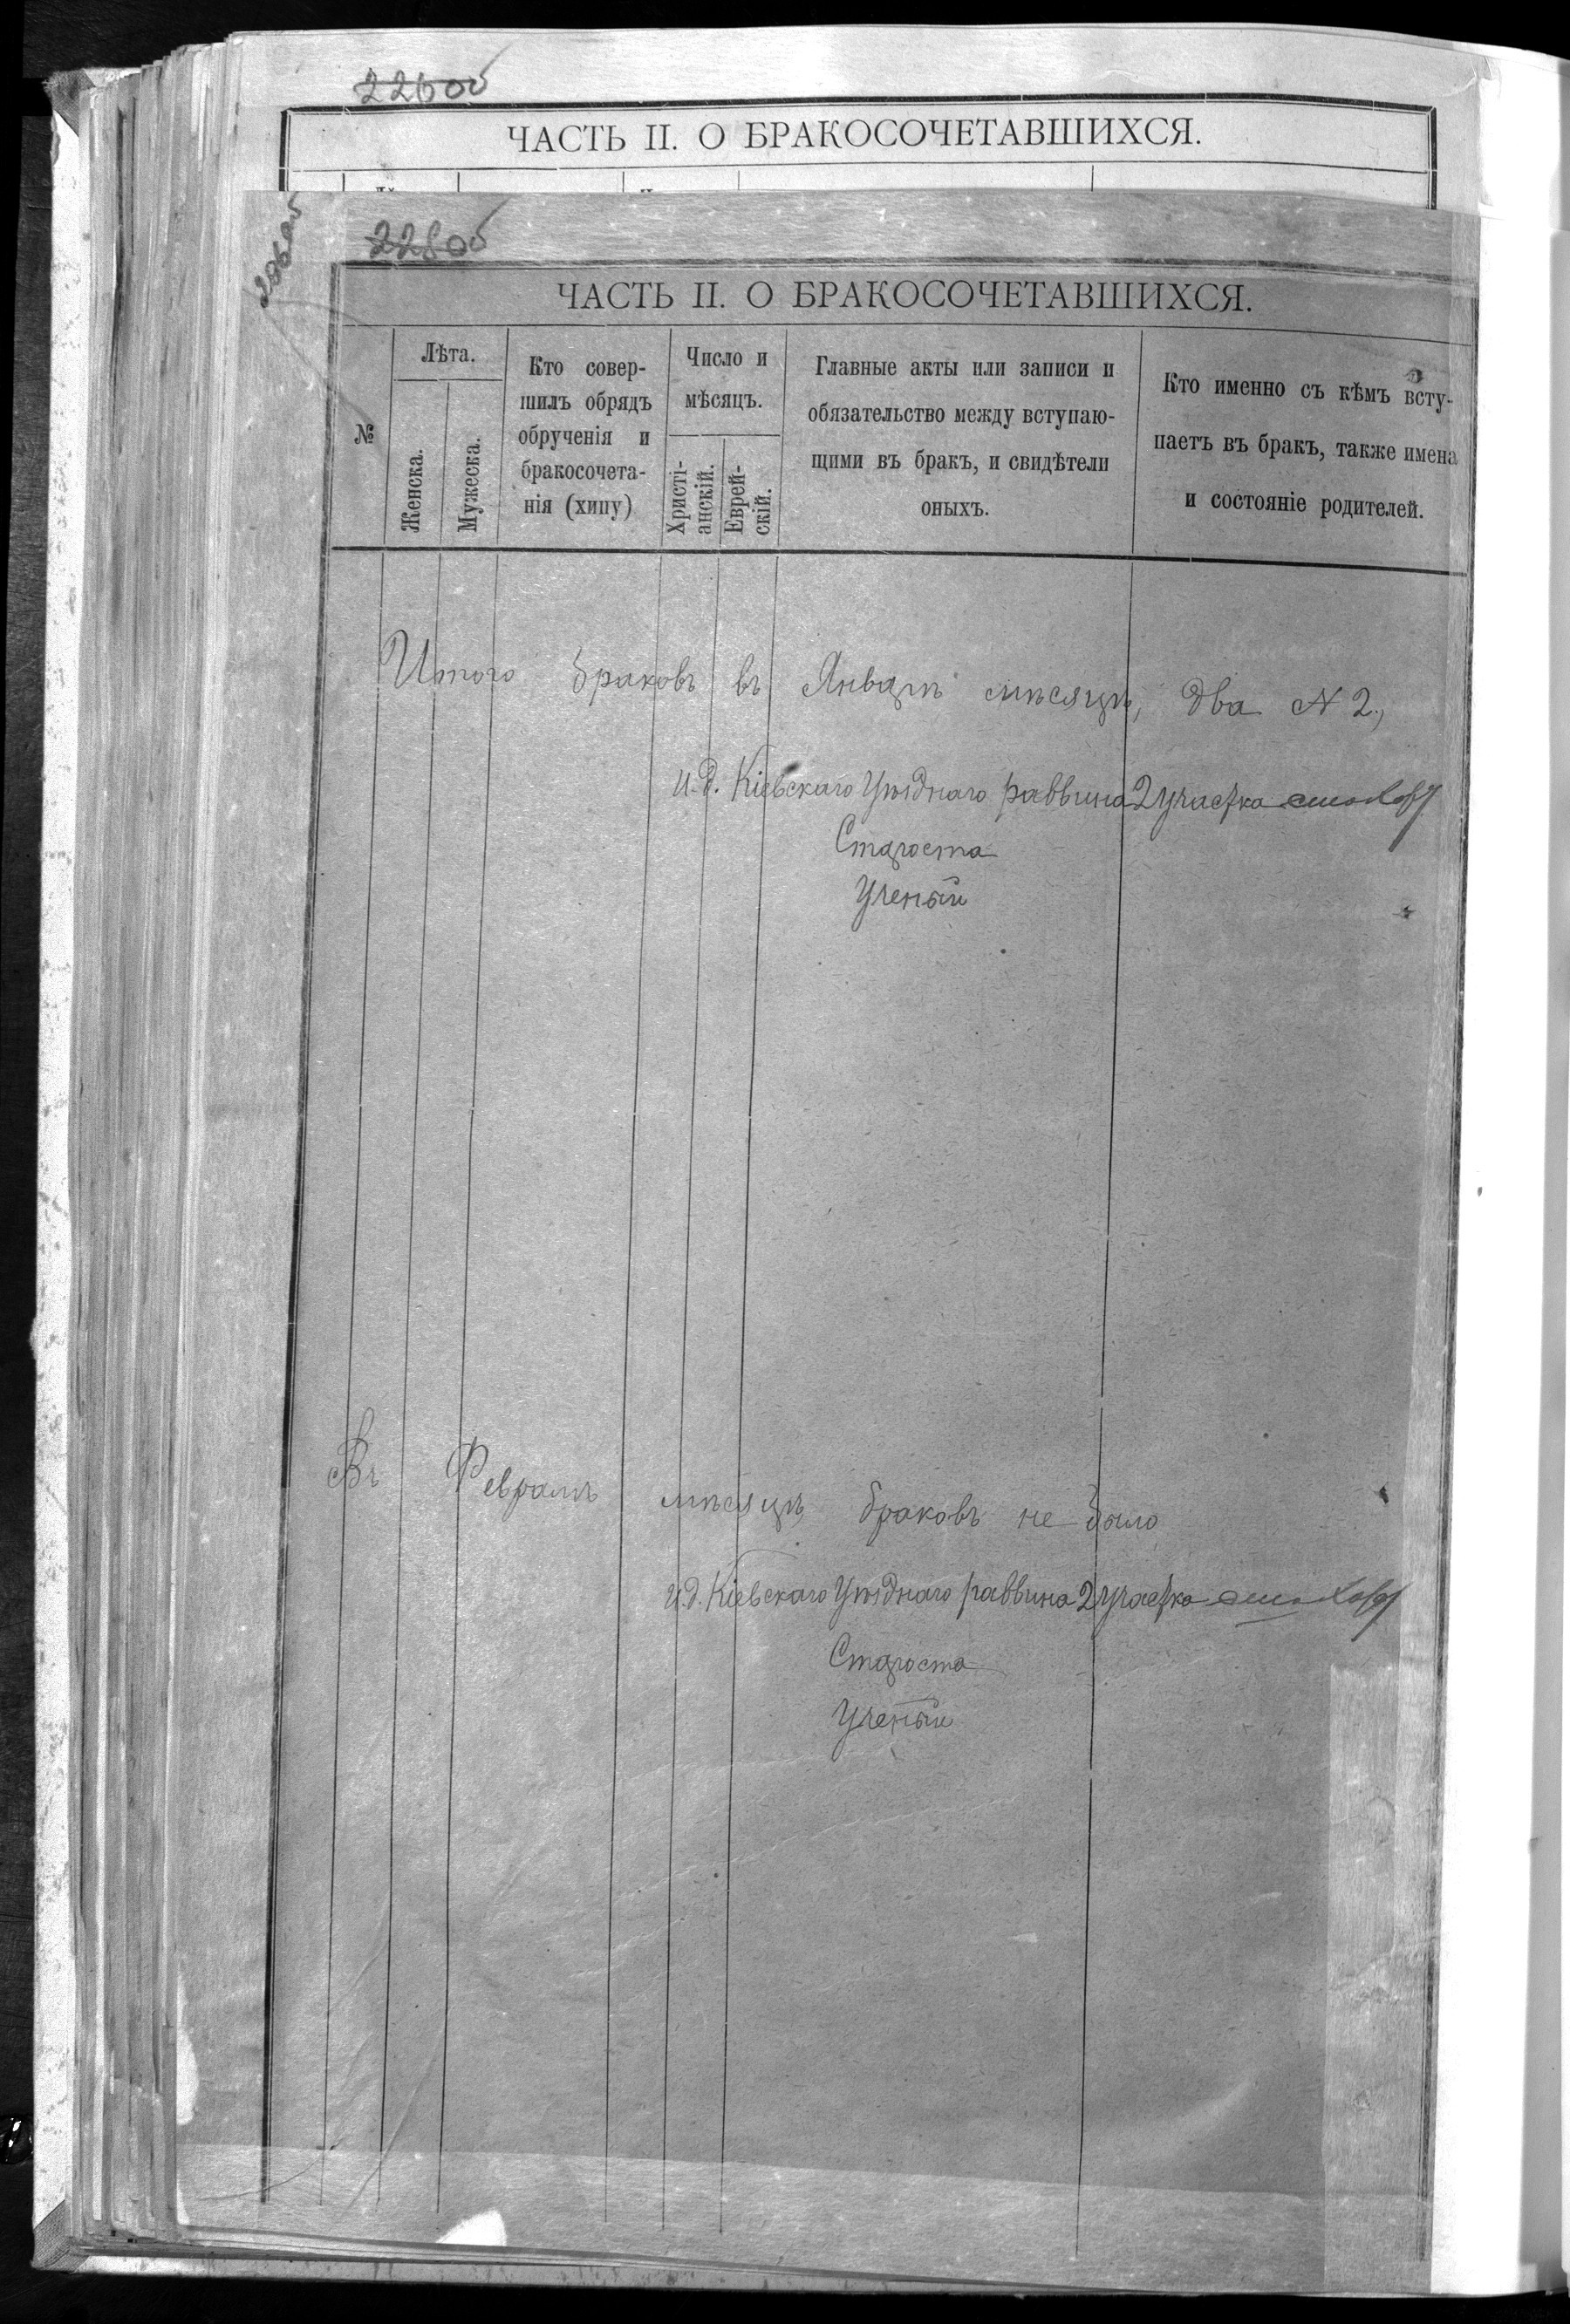 ЧАСТЬ II. О БРАКОСОЧЕТАВШИХСЯ.
ЧАСТЬ II. О БРАКОСОЧЕТАВШИХСЯ.
№
Лѣта.
Женска.
Мужеска.
Кто совер-
шилъ обрядъ
обрученія и
бракосочета-
нія (хипу)
Число и
мѣсяцъ.
Христі-
анскій.
Еврей-
скій.
Главные акты или записи и
обязательство между вступаю-
щими въ бракъ, и свидѣтели
оныхъ.
Кто именно съ кѣмъ всту-
паетъ въ бракъ, также имена
и состояніе родителей.
Итого браковъ въ Январѣ мѣсяцѣ, два N 2,
И.д. Кіевскаго Уѣзднаго раввина 2 участка
Староста
Ученый
Въ Февралѣ мѣсяцѣ браковъ не было
И.д. Кіевскаго Уѣзднаго раввина 2 участка
Староста
Ученый